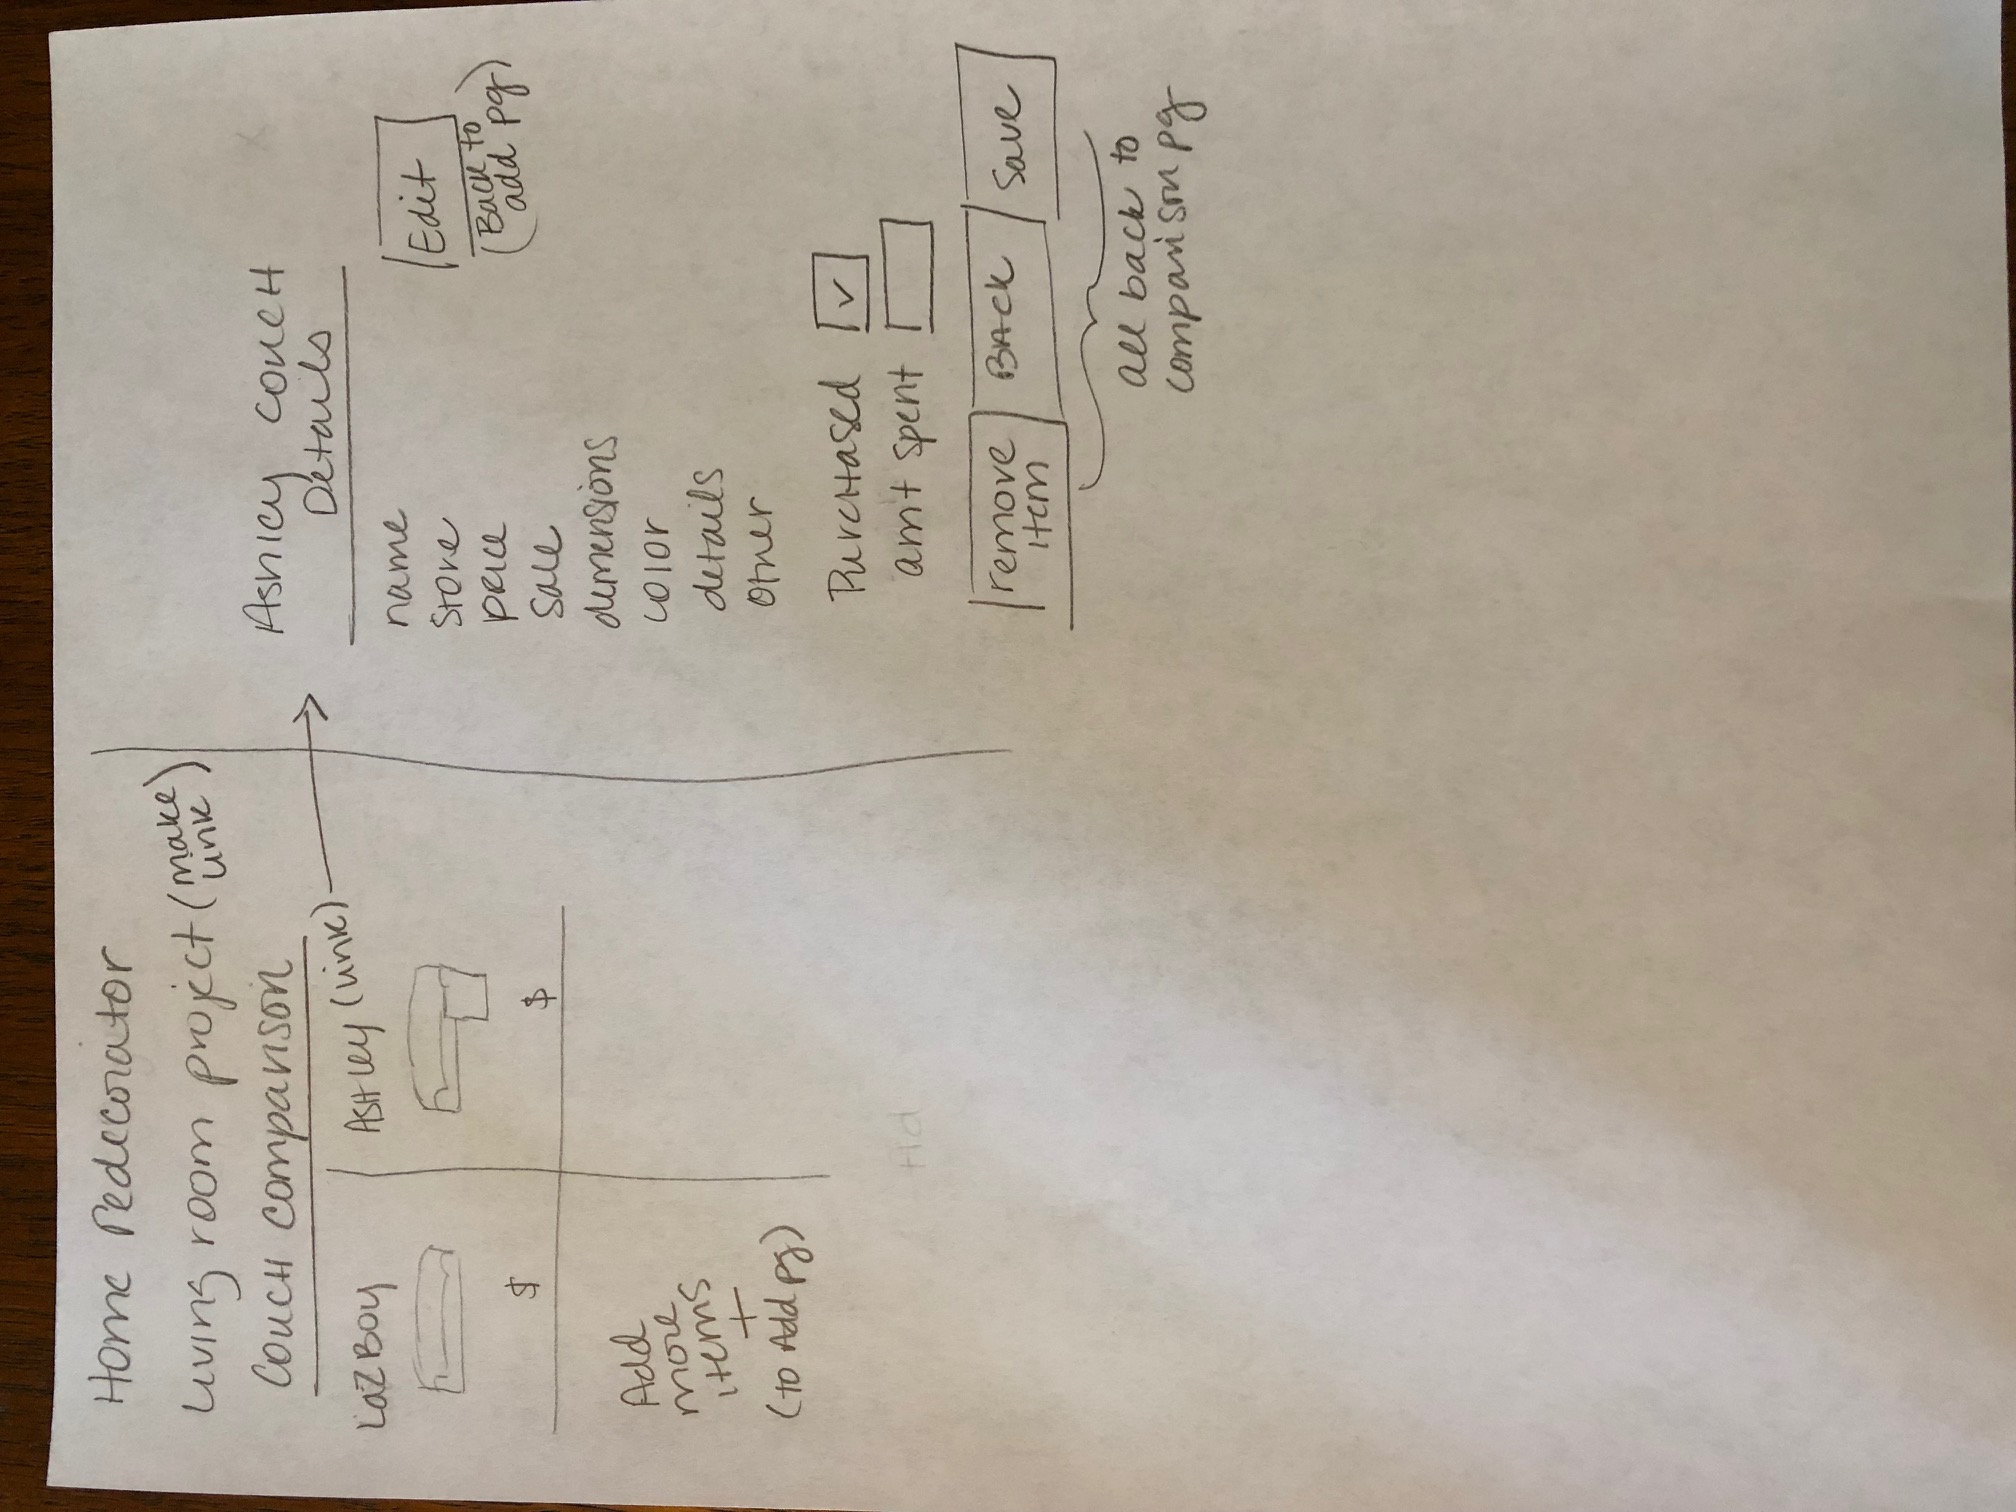 Home redecorator
Living room project (make
link)
Couch comparison
LaZBoy
Ashley (link)
$
$
Add
more
items
+
(to Add pg)
Ashley couch
Details
name
Store
price
Sale
demensions
color
details
other
Edit
(Back to
add pg)
Purchased ✓
amt spent
remove
item
Back
Save
all back to
comparison pg